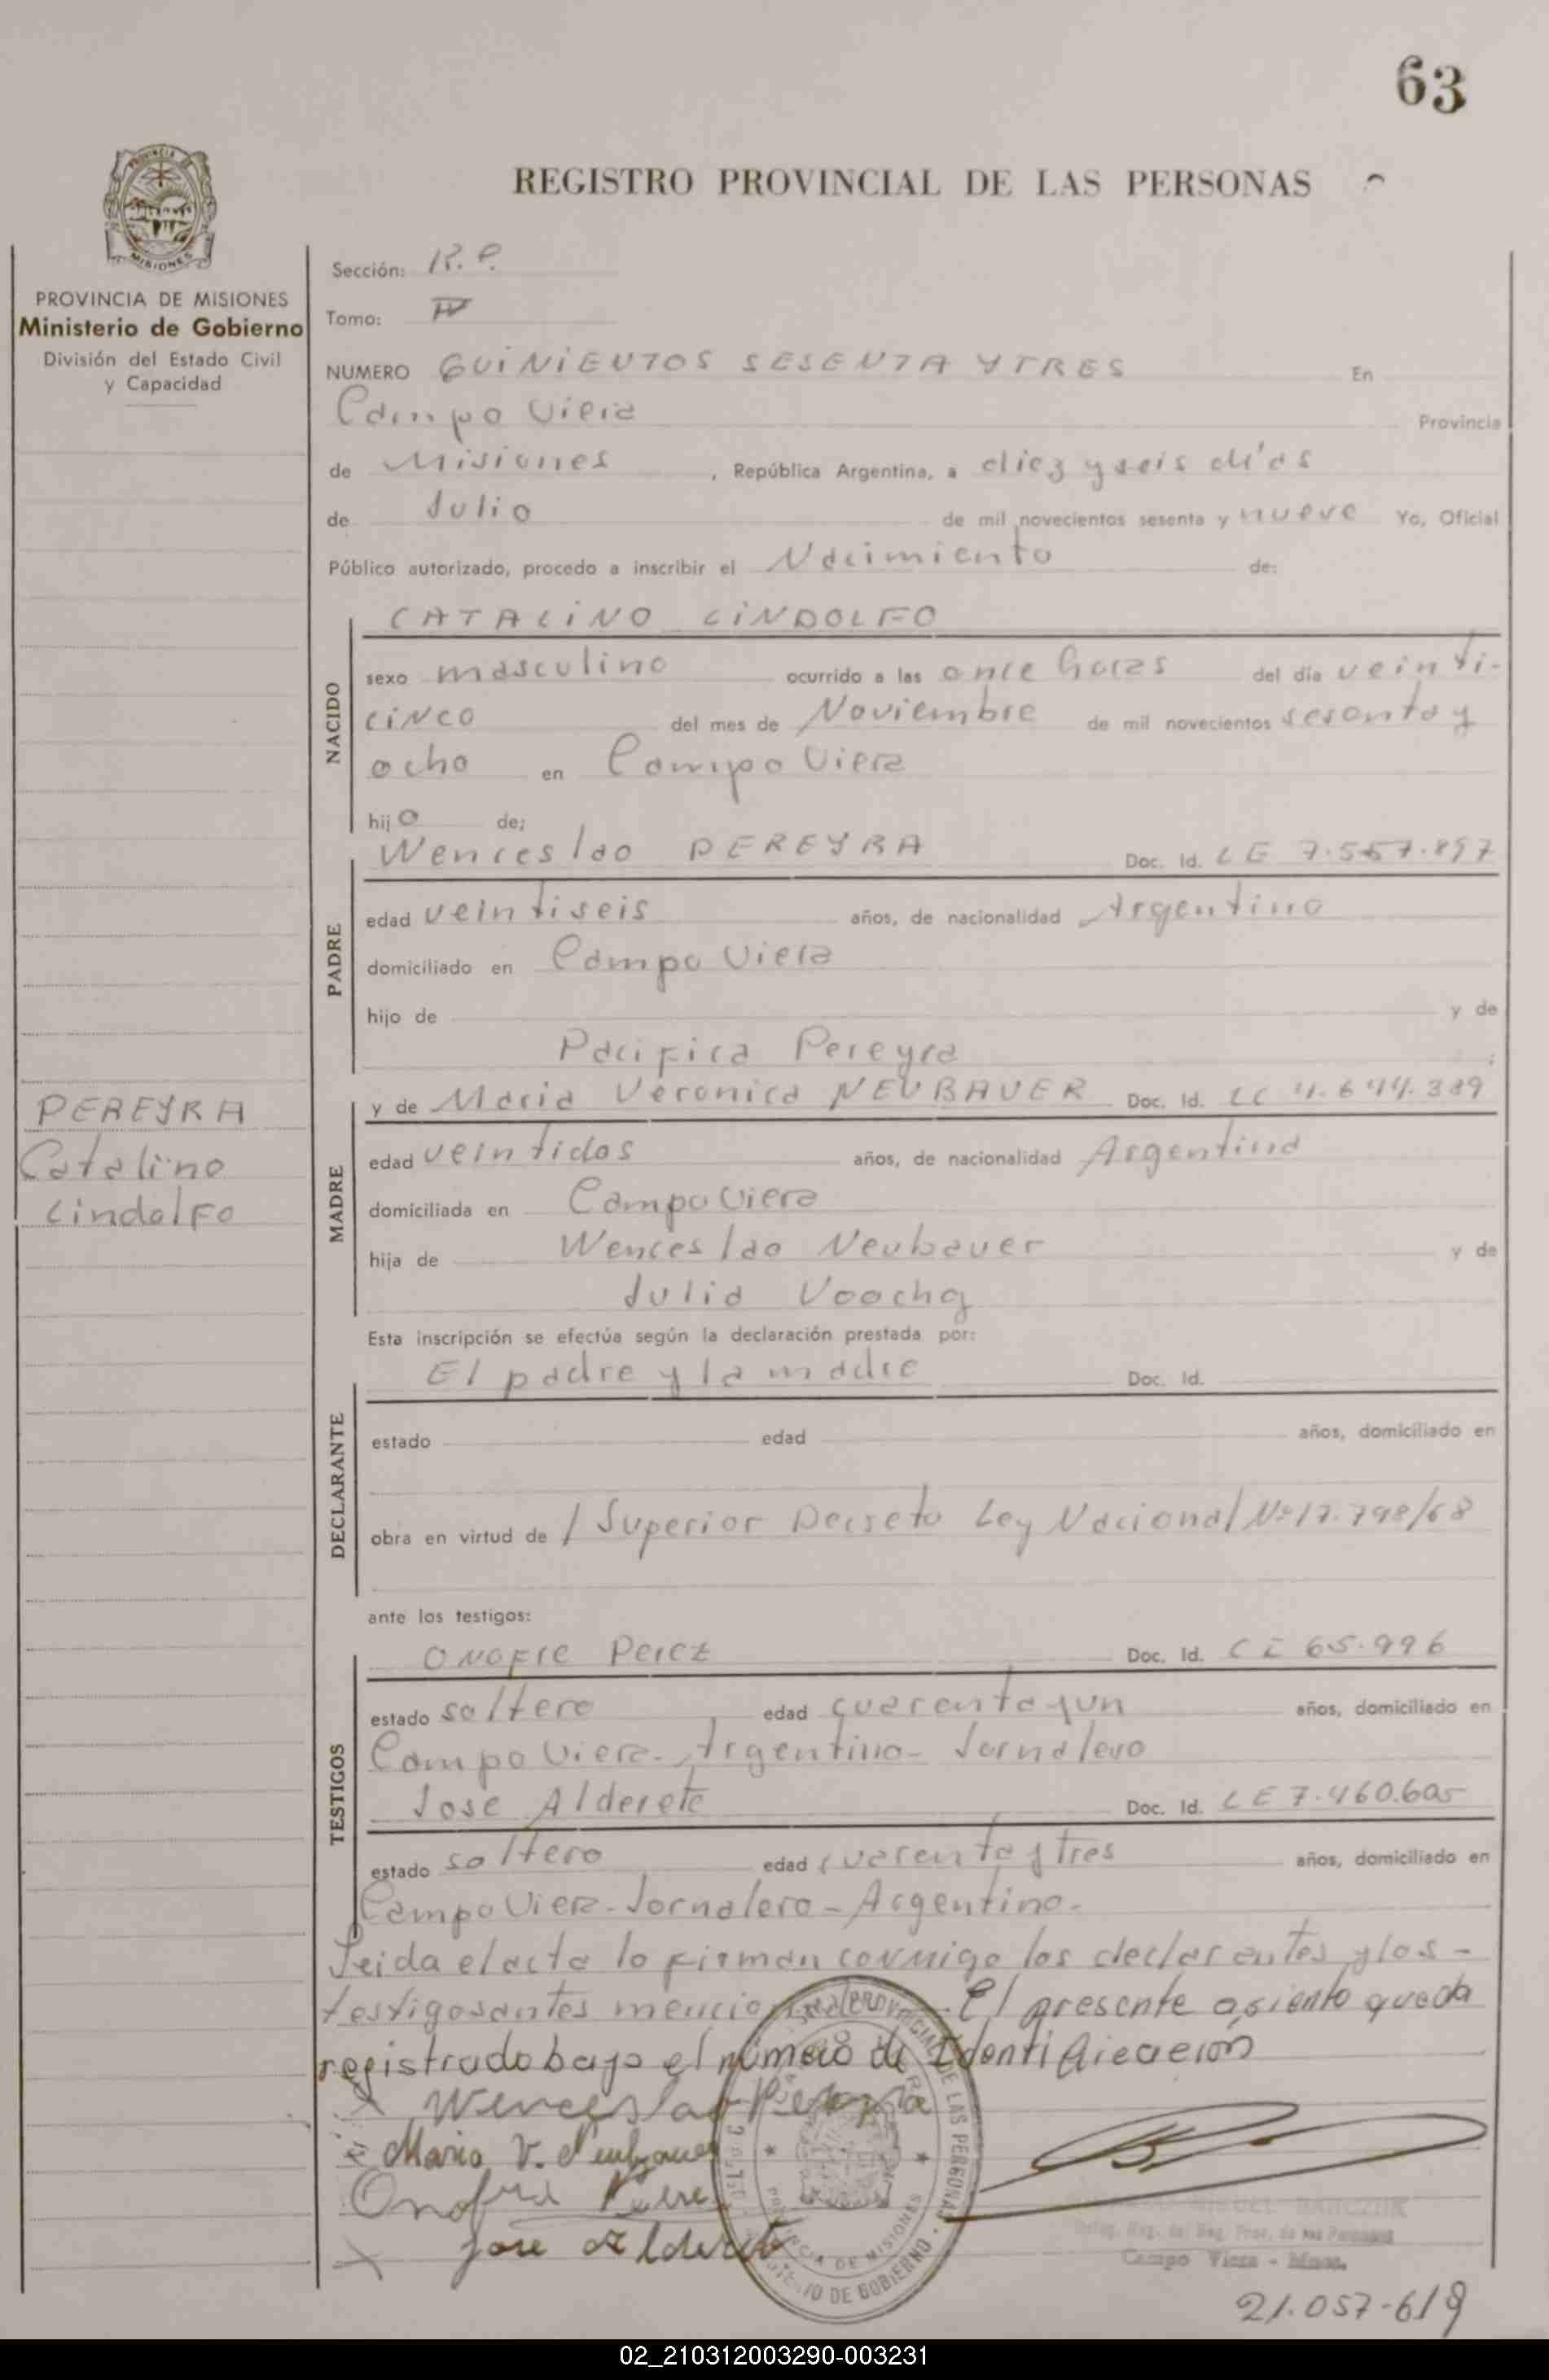 63
REGISTRO PROVINCIAL DE LAS PERSONAS
PROVINCIA DE MISIONES
Ministerio de Gobierno
División del Estado Civil
y Capacidad
PEREYRA
Catalino
Lindolfo
Sección: R. P.
Tomo: IV
NUMERO QUINIENTOS SESENTA Y TRES En
Campo Viera Provincia
de Misiones , República Argentina, a diez y seis días
de Julio de mil novecientos sesenta y nueve Yo, Oficial
Público autorizado, procedo a inscribir el Nacimiento de:
NACIDO
CATALINO LINDOLFO
sexo masculino ocurrido a las once horas del día veinti-
cinco del mes de Noviembre de mil novecientos sesenta y
ocho en Campo Viera
hijo de;
PADRE
Wenceslao PEREYRA Doc. Id. LE 7.557.897
edad veintiseis años, de nacionalidad Argentino
domiciliado en Campo Viera
hijo de y de
Pacifica Pereyra ;
MADRE
y de Maria Veronica NEUBAUER Doc. Id. LC 4.644.389
edad veintidos años, de nacionalidad Argentina
domiciliada en Campo Viera
hija de Wenceslao Neubauer y de
Julia
Esta inscripción se efectúa según la declaración prestada por:
DECLARANTE
El padre y la madre Doc. Id.
estado edad años, domiciliado en
obra en virtud de / Superior Decreto Ley Nacional Nº 17.798/68
ante los testigos:
TESTIGOS
Onofre Perez Doc. Id. CI 65.996
estado soltero edad cuarenta y un años, domiciliado en
Campo Viera - Argentino - Jornalero
Jose Alderete Doc. Id. LE 7.460.605
estado soltero edad cuarenta y tres años, domiciliado en
Campo Viera - Jornalero - Argentino.
Leida el acta lo firman conmigo los declarantes y los -
testigos antes El presente asiento queda
registrado bajo el número de Identificación
Wenceslao Pereyra
Maria V. Neubauer
Onofre
Jose Alderete
PROVINCIAL DE LAS PERSONAS
PROVINCIA DE MISIONES
DE GOBIERNO
Campo Viera - Mnes.
21.057-619
02_210312003290-003231